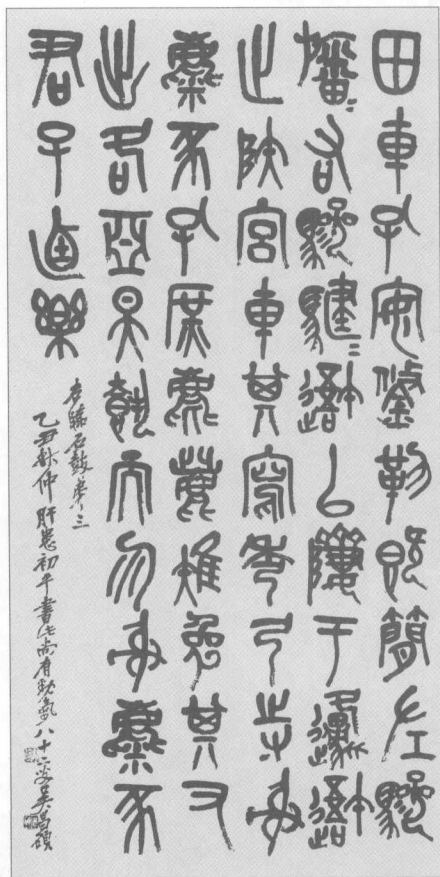 田車孔安鋚勒既簡左驂
旛=右驂騝=䢦以隮于邍䢦
止陸宮車其寫秀弓寺射
麋豕孔庶麀鹿雉兔其又
出各亞昊執而勿射麋豕
君子逌樂
臨石鼓弟三
乙丑秋仲肝恙初平書此尚有勁氣八十二叟吳昌碩